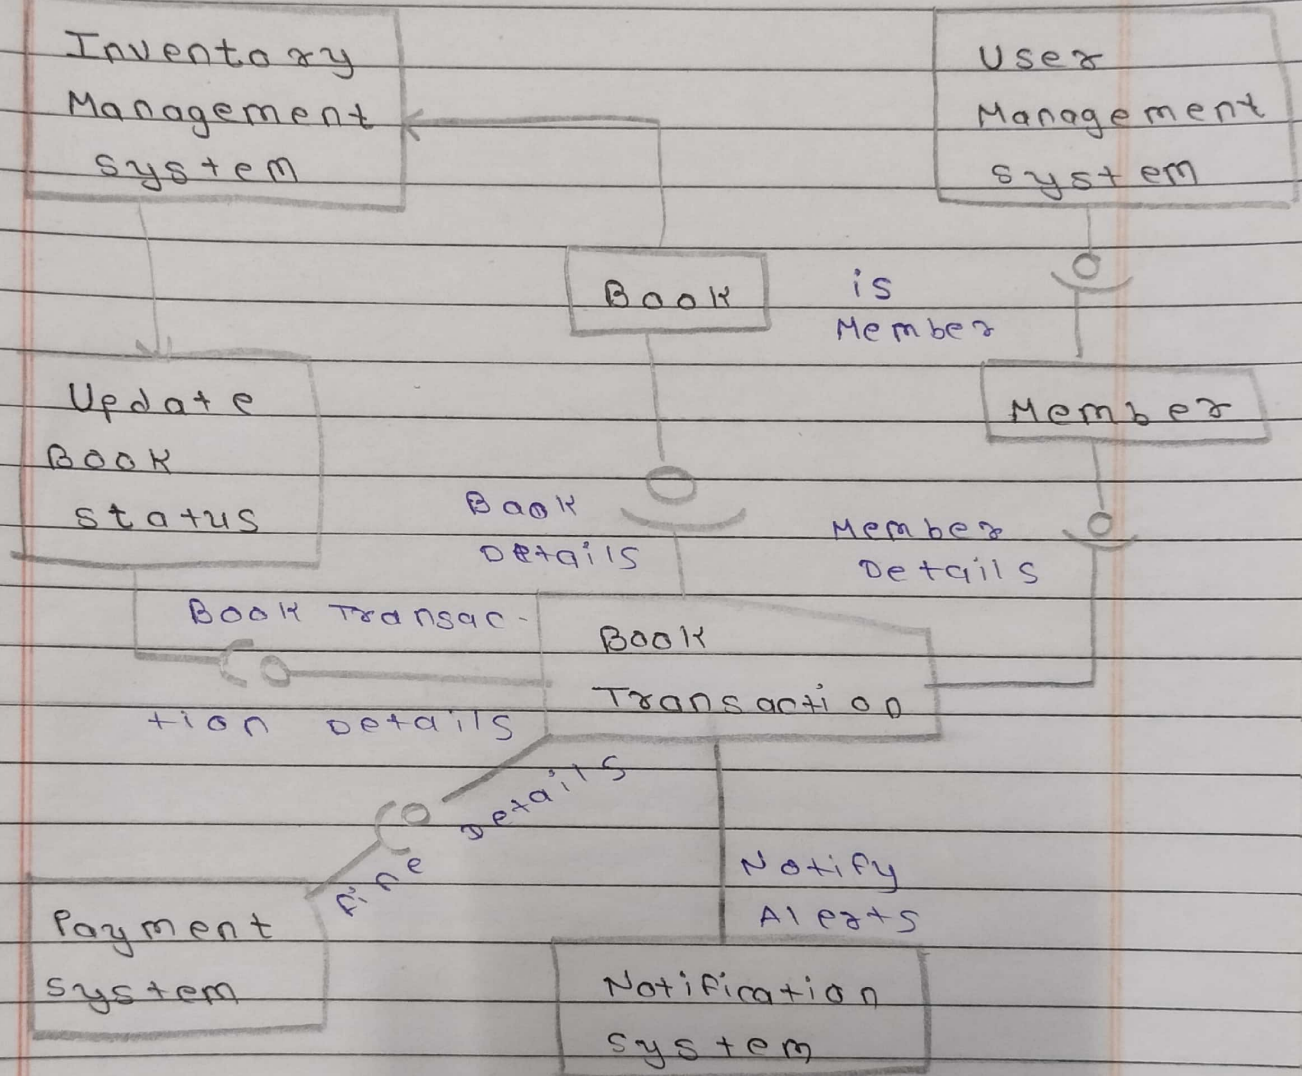 Inventory
Management
System
User
Management
System
Book
is
Member
Update
Book
Status
Member
Book
Details
Member
Details
Book Transac-
tion Details
Book
Transaction
Fine Details
Notify
Alerts
Payment
System
Notification
System